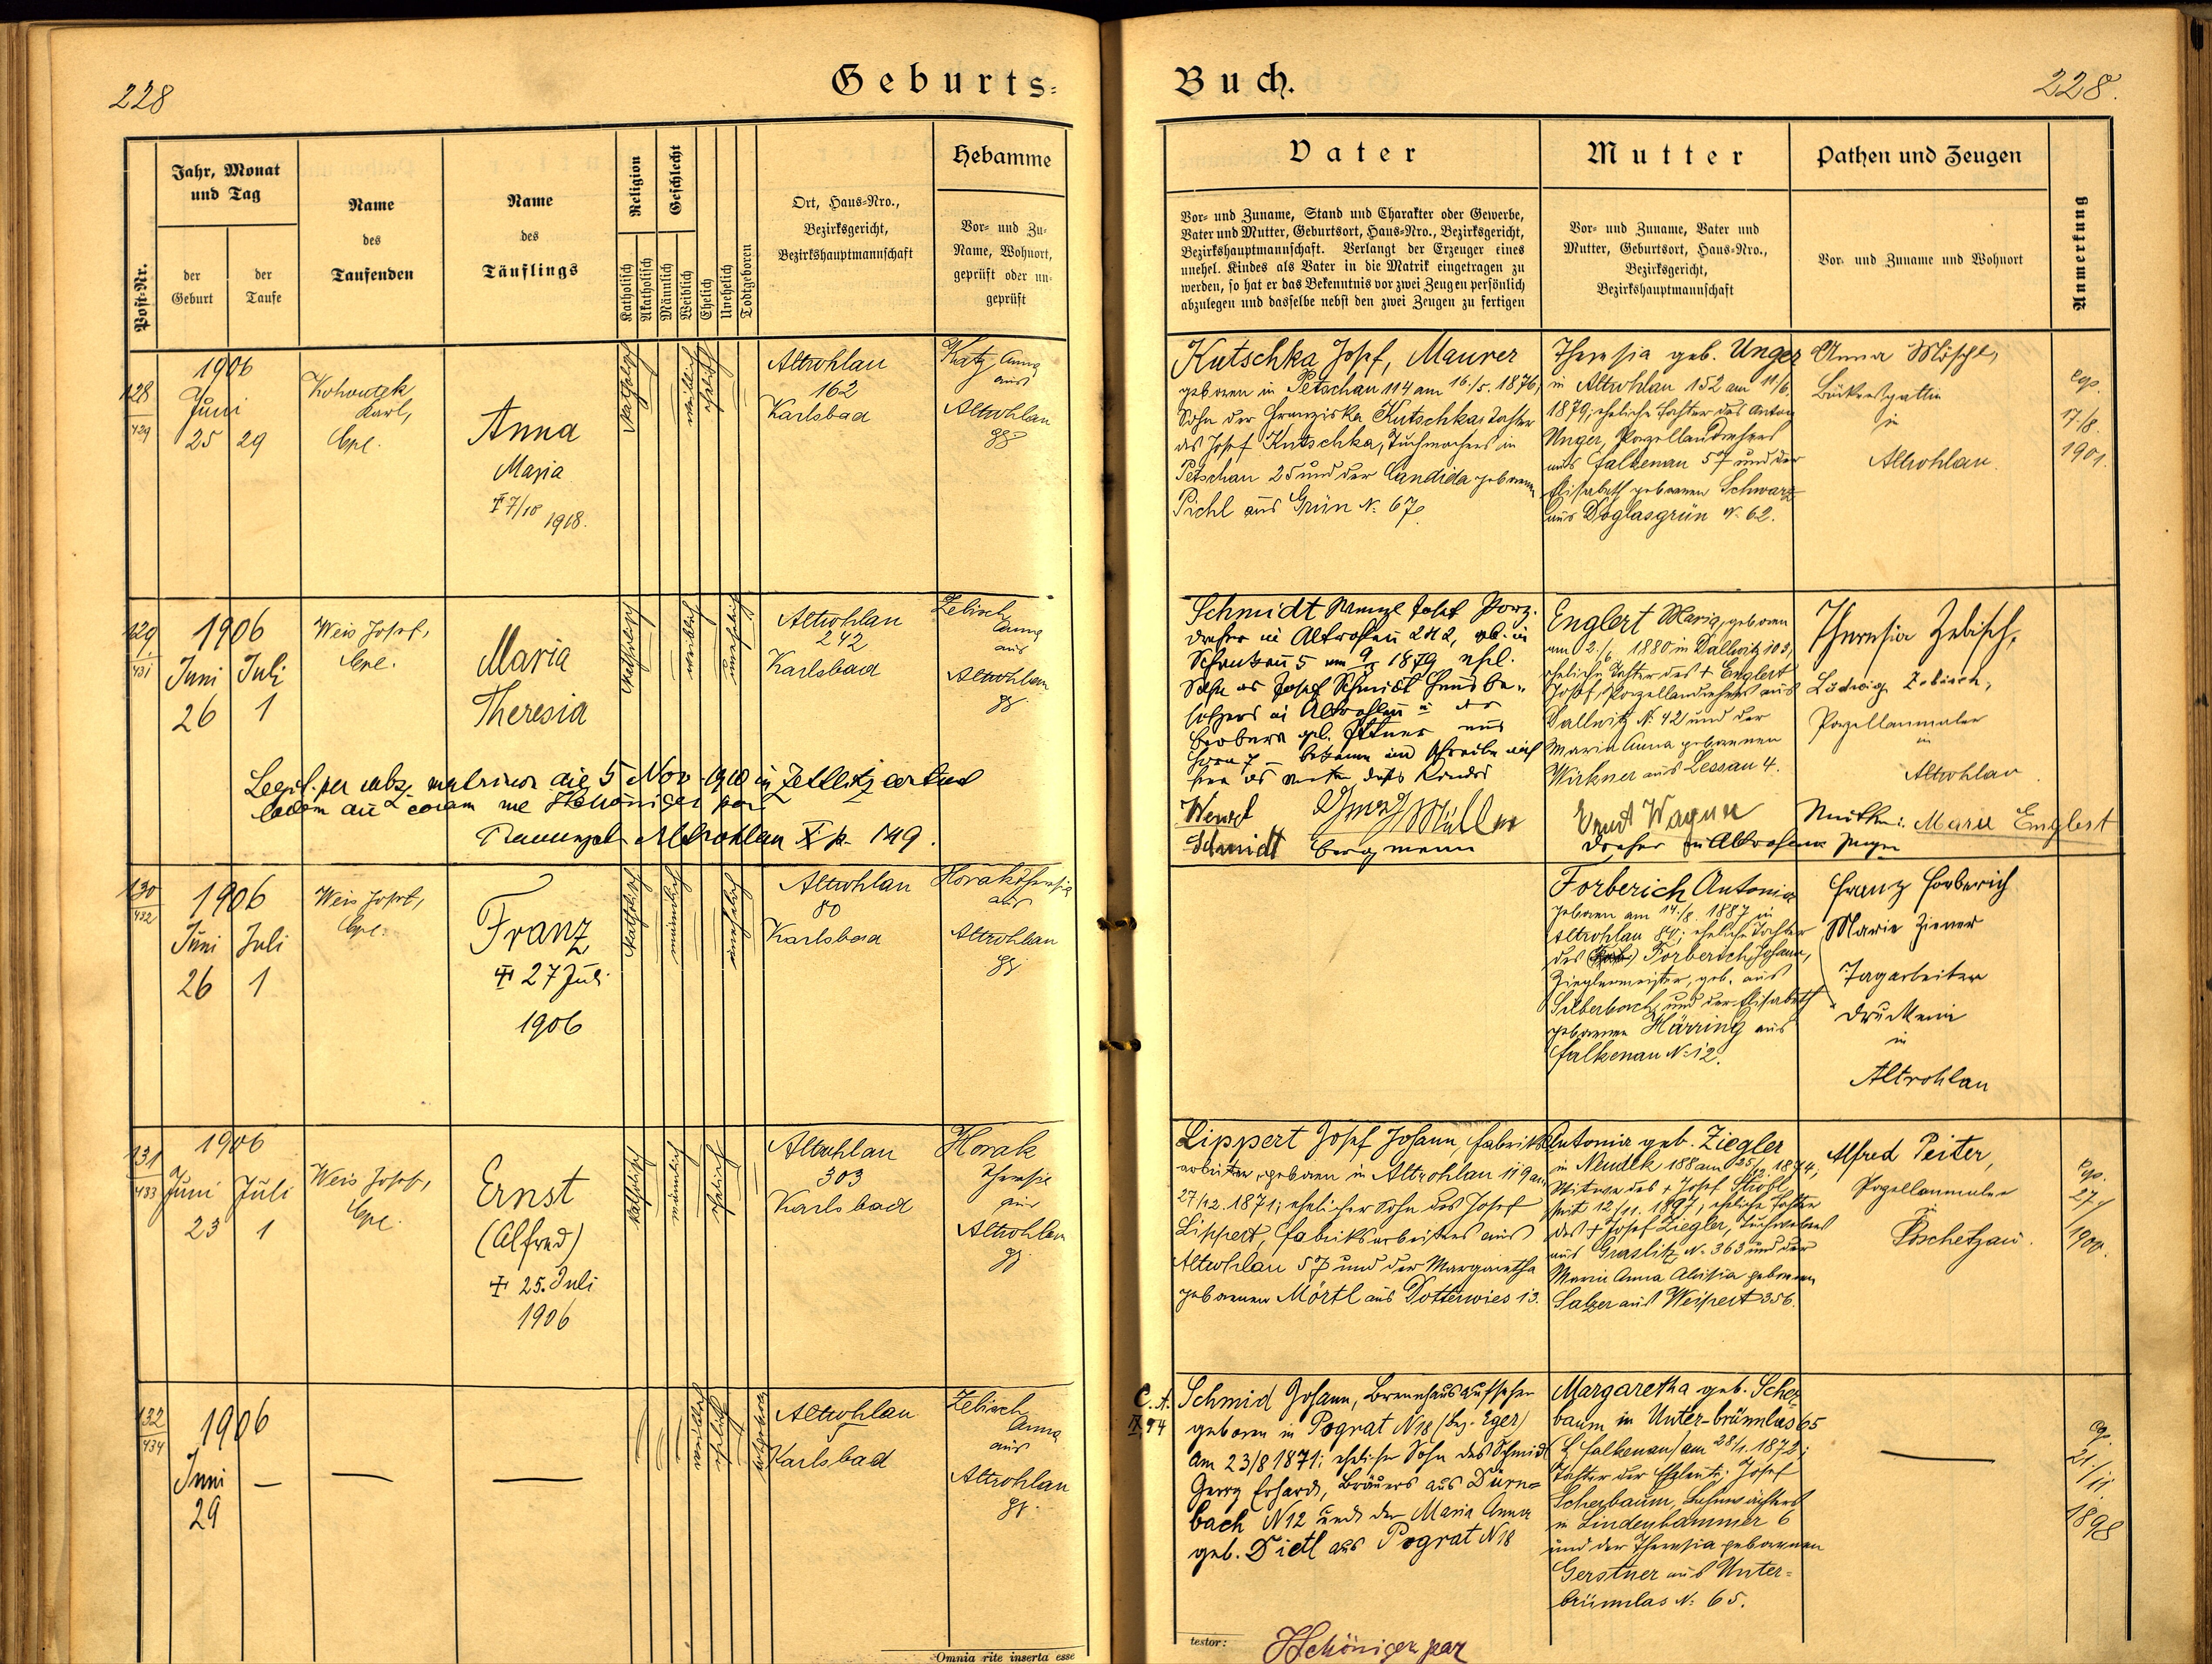 228
Geburts-
Buch.
228.
Post-Nr.
Jahr, Monat
und Tag
der
Geburt
der
Taufe
Name
des
Taufenden
Name
des
Täuflings
Religion
Katholisch
Akatholisch
Geschlecht
Männlich
Weiblich
Ehelich
Unehelich
Todtgeboren
Ort, Haus-Nro.,
Bezirksgericht,
Bezirkshauptmannschaft
Hebamme
Vor- und Zu-
Name, Wohnort,
geprüft oder un-
geprüft
Vater
Vor- und Zuname, Stand und Charakter oder Gewerbe,
Vater und Mutter, Geburtsort, Haus-Nro., Bezirksgericht,
Bezirkshauptmannschaft. Verlangt der Erzeuger eines
unehel. Kindes als Vater in die Matrik eingetragen zu
werden, so hat er das Bekenntnis vor zwei Zeugen persönlich
abzulegen und dasselbe nebst den zwei Zeugen zu fertigen
Mutter
Vor- und Zuname, Vater und
Mutter, Geburtsort, Haus-Nro.,
Bezirksgericht,
Bezirkshauptmannschaft
Pathen und Zeugen
Vor- und Zuname und Wohnort
Anmerkung
128
429
1906
Juni
25 29
Kohoutek
Karl,
Cpl.
Anna
Maria
‡ 7/10 1918.
katholisch
weiblich
ehelich
Altrohlau
162
Karlsbad
Katz Anna
aus
Altrohlau
gp
Kutschka Josef, Maurer
geboren in Petschau 114 am 16./5. 1876,
Sohn der Franziska Kutschka, Tochter
des Josef Kutschka, Tuchmachers in
Petschau 25 und der Candida geborenen
Pichl aus Grün N. 67.
Theresia geb. Unger
in Altrohlau 152 am 11/6.
1879; eheliche Tochter des Anton
Unger, Porzellandrehers
aus Falkenau 57 und der
Elisabeth geborenen Schwarz
aus Doglasgrün N. 62.
Anna Möschl,
Bäckersgattin
in
Altrohlau.
cop.
17/8.
1901.
129
431
1906
Juni Juli
26 1
Weis Josef,
Cpl.
Maria
Theresia
katholisch
weiblich
unehelich
Altrohlau
242
Karlsbad
Zebisch
Anna
aus
Altrohlau
gp.
Legit. per subs. matrimon die 5 Nov. 1910 in Zettlitz
coram me Schöniger par
Trauungsb. Altrohlau X p. 149.
Schmidt Wenzl Josef Porz.
dreher in Altrohlau 242, geb. in
5 am 9/ 1879 ehel.
Sohn des Josef Schmidt Hausbe-
sitzers in Altrohlau u der
Barbara geb.
bekenne und schreibe mich
hier als Vater dieses Kindes
Wenzl
Schmidt
Georg Müller
Bergmann
Englert Maria, geboren
am 2./6 1880 in Dallwitz 103,
eheliche Tochter des + Englert
Josef, Porzellandrehers aus
Dallwitz N. 42 und der
Maria Anna geborenen
Wirkner aus Lessau 4.
Ernst Wagner
Dreher in Altrohlau Zeuge
Theresia Zebisch,
Ludwig Zebisch,
Porzellanmaler
in
Altrohlau.
Mutter: Marie Englert
130
432
1906
Juni Juli
26 1
Weis Josef,
Cpl.
Franz
‡ 27 Juli
1906
katholisch
männlich
unehelich
Altrohlau
80
Karlsbad
Horak Theresia
aus
Altrohlau
gp.
Forberich Antonia
geboren am 14./8. 1887 in
Altrohlau 84; eheliche Tochter
des Forberich Johann,
Zieglermeister, geb. aus
Silberbach, und der Elisabeth
geborenen Härring aus
Falkenau N. 12.
Franz Forberich
Marie Ziener
Tagarbeiter
Druckerin
in
Altrohlau
131
433
1906
Juni Juli
23 1
Weis Josef,
Cpl.
Ernst
(Alfred)
‡ 25. Juli
1906
katholisch
männlich
ehelich
Altrohlau
303
Karlsbad
Horak
Theresia
aus
Altrohlau
gp
Lippert Josef Johann, Fabriks-
arbeiter, geboren in Altrohlau 119 am
27/12. 1871; ehelicher Sohn des Josef
Lippert, Fabriksarbeiters aus
Altrohlau 57 und der Margaretha
geborenen Mörtl aus Dotterwies 13.
Antonia geb. Ziegler
in Neudek 188 am 25/12 1874;
Witwe des + Josef Strohl
seit 12/11. 1897; eheliche Tochter
des + Josef Ziegler, Tuchwebers
aus Graslitz N. 363 und der
Maria Anna Aloisia geborenen
Salzer aus Weipert 356.
Alfred Peiter,
Porzellanmaler
in
Poschetzau.
cop.
27/
1900.
132
434
1906
Juni
29
—
—
—
weiblich
ehelich
totgeboren
Altrohlau
5
Karlsbad
Zebisch
Anna
aus
Altrohlau
gp.
C. A.
IX, 94
Schmid Johann, Brennhausaufseher
geboren in Pograt N 18 (Bez. Eger)
am 23/8 1871; ehelicher Sohn des Schmid
Georg Erhard, Bräuers aus Dürn-
bach N 12 und der Maria Anna
geb. Dietl aus Pograt N 18
Margaretha geb. Scher-
baum in Unter-brünnlas 65
(B. Falkenau) am 28/1. 1872;
Tochter der Eheleute: Josef
Scherbaum, Bahnwächters
in Lindenhammer 6
und der Theresia geborenen
Gerstner aus Unter-
brünnlas N. 65.
—
cop.
21./11
1898
Omnia rite inserta esse
testor:
Schöniger par